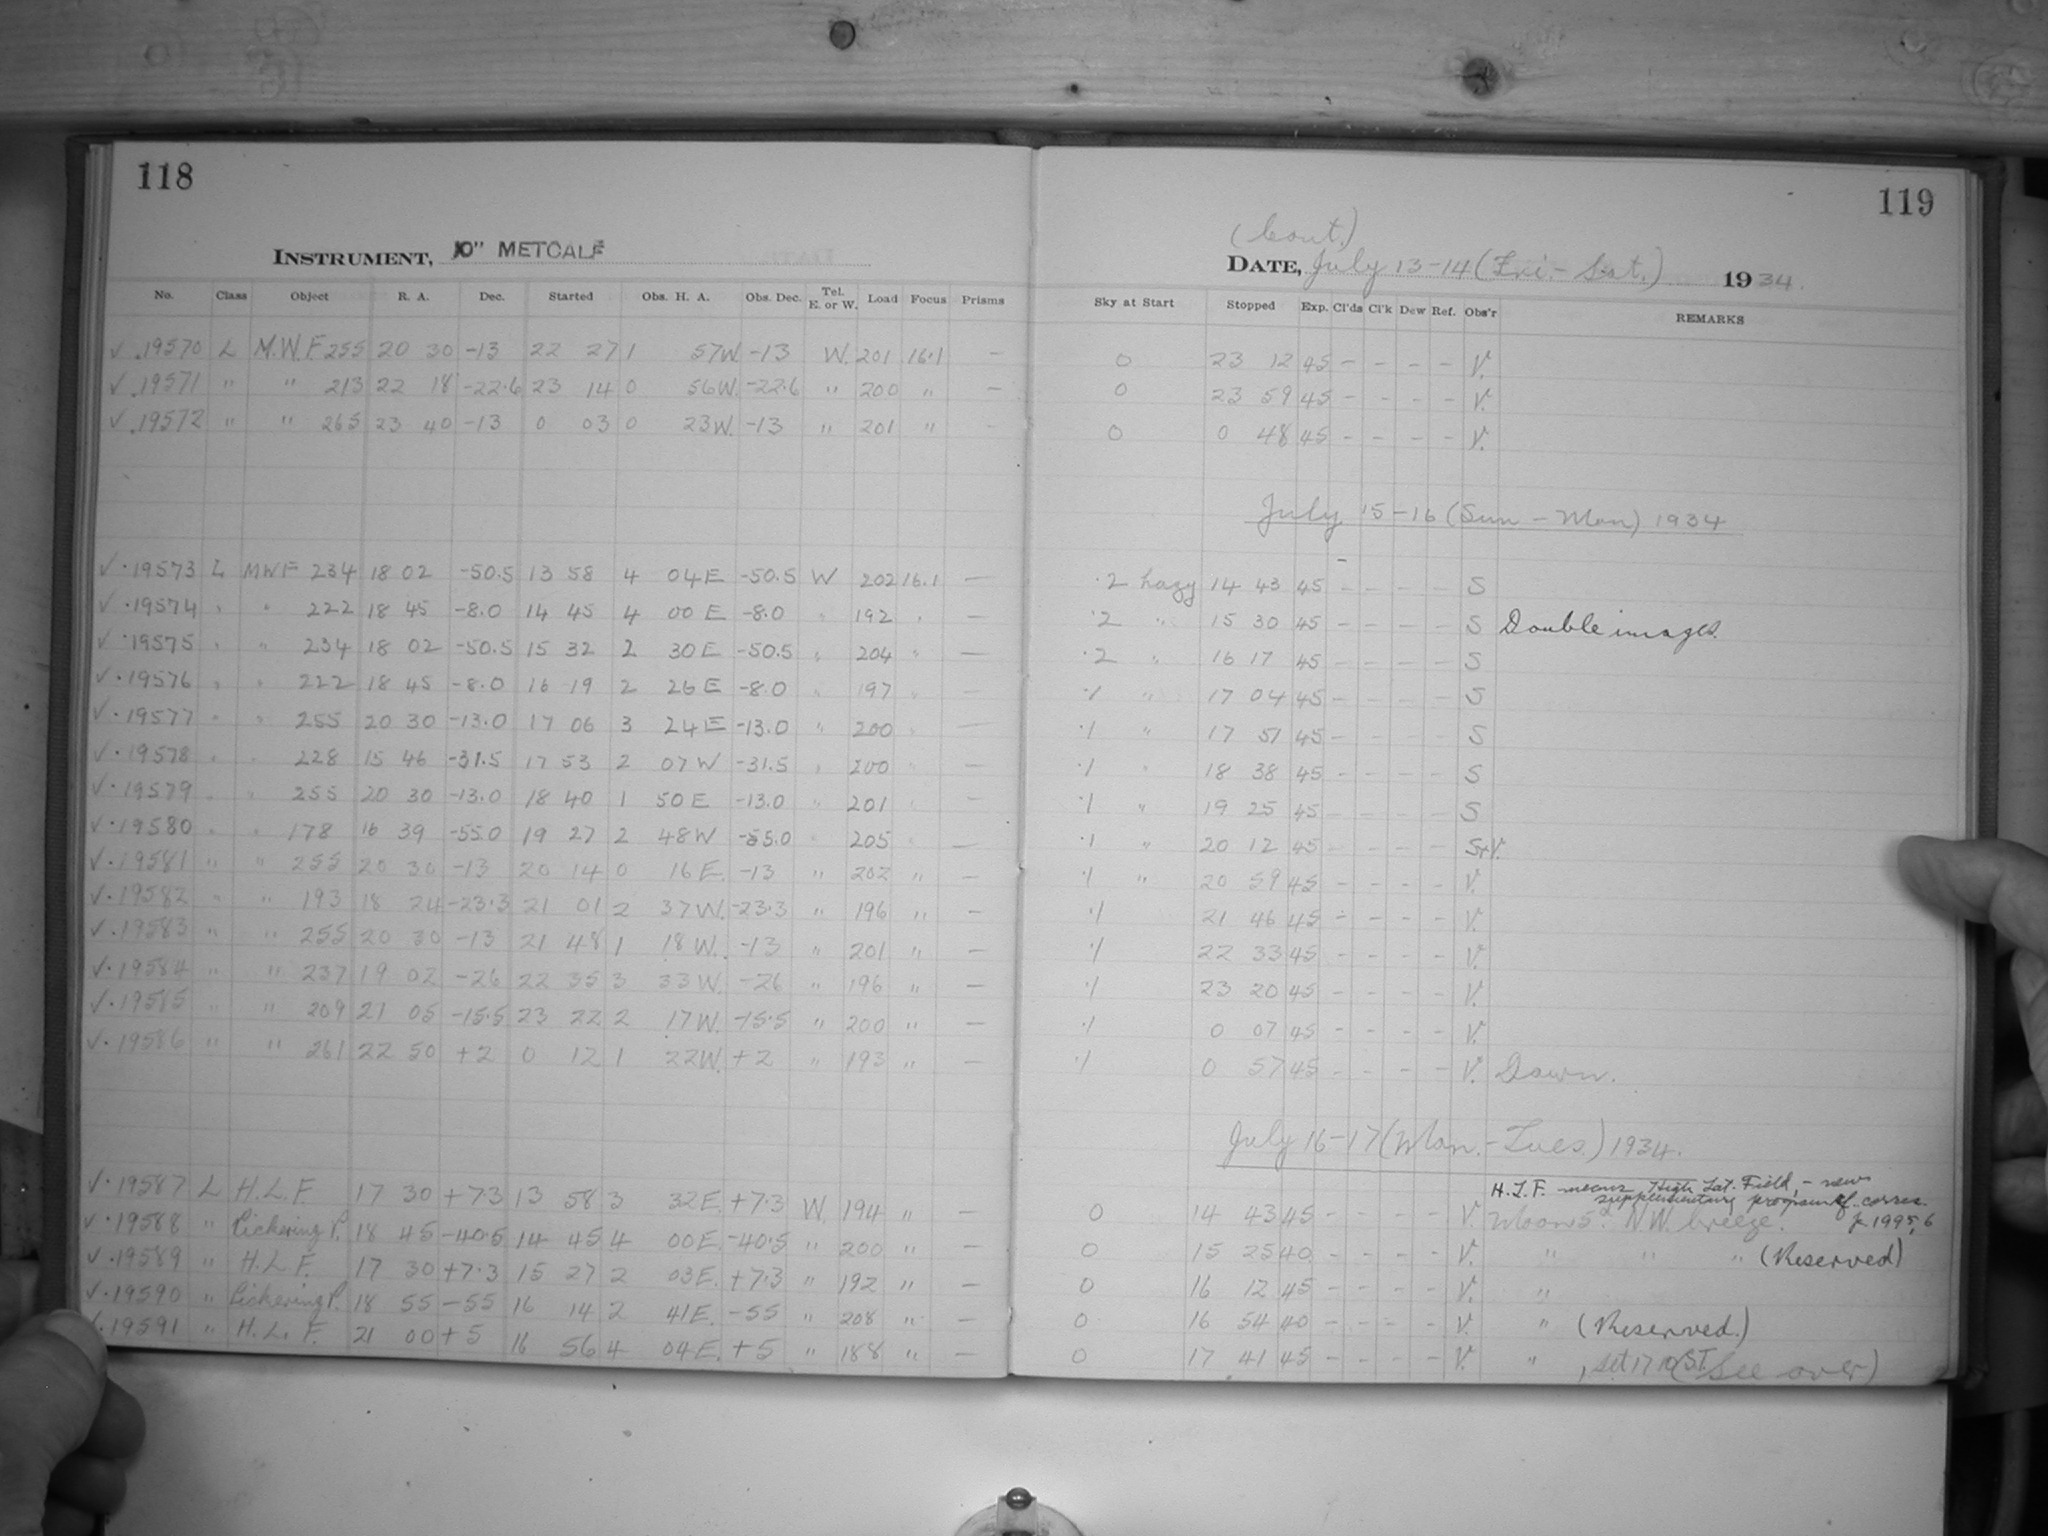 118
INSTRUMENT, 10" METCALF
No. Class Object R. A. Dec. Started Obs. H. A. Obs. Dec. Tel. E. or W. Load Focus Prisms
√ .19570 L M.W.F 255 20 30 -13 22 27 1 57W -13 W. 201 16.1 —
√ .19571 " " 213 22 18 -22.6 23 14 0 56W. -22.6 " 200 " —
√ .19572 " " 265 23 40 -13 0 03 0 23W. -13 " 201 " -
√ .19573 L MWF 234 18 02 -50.5 13 58 4 04E -50.5 W 202 16.1 —
√ .19574 " " 222 18 45 -8.0 14 45 4 00E -8.0 " 192 " —
√ .19575 " " 234 18 02 -50.5 15 32 2 30E -50.5 " 204 " —
√ .19576 " " 222 18 45 -8.0 16 19 2 26E -8.0 " 197 " —
√ .19577 " " 255 20 30 -13.0 17 06 3 24E -13.0 " 200 " —
√ .19578 " " 228 15 46 -31.5 17 53 2 07W -31.5 " 200 " —
√ .19579 " " 255 20 30 -13.0 18 40 1 50E -13.0 " 201 " —
√ .19580 " " 178 16 39 -55.0 19 27 2 48W -55.0 " 205 " —
√ .19581 " " 255 20 30 -13 20 14 0 16E. -13 " 202 " —
√ .19582 " " 193 18 24 -23.3 21 01 2 37W. -23.3 " 196 " —
√ .19583 " " 255 20 30 -13 21 48 1 18W. -13 " 201 " —
√ .19584 " " 237 19 02 -26 22 35 3 33W. -26 " 196 " —
√ .19585 " " 209 21 05 -15.5 23 22 2 17W. -15.5 " 200 " —
√ .19586 " " 261 22 50 +2 0 12 1 22W. +2 " 193 " —
√ .19587 L H.L.F. 17 30 +7.3 13 58 3 32E. +7.3 W. 194 " —
√ .19588 " Pickering P. 18 45 -40.5 14 45 4 00E. -40.5 " 200 " —
√ .19589 " H.L.F. 17 30 +7.3 15 27 2 03E. +7.3 " 192 " —
√ .19590 " Pickering P. 18 55 -55 16 14 2 41E. -55 " 208 " —
√ .19591 " H.L.F. 21 00 +5 16 56 4 04E. +5 " 188 " —
119
(Cont.)
DATE, July 13-14 (Fri.- Sat.) 1934.
Sky at Start Stopped Exp. Cl'ds Cl'k Dew Ref. Obs'r REMARKS
0 23 12 45 - - - - V.
0 23 59 45 - - - - V.
0 0 48 45 - - - - V.
July 15-16 (Sun - Mon) 1934
.2 hazy 14 43 45 - - - - S
.2 " 15 30 45 - - - - S Double images.
.2 " 16 17 45 - - - - S
.1 " 17 04 45 - - - - S
.1 " 17 51 45 - - - - S
.1 " 18 38 45 - - - - S
.1 " 19 25 45 - - - - S
.1 " 20 12 45 - - - - S+V.
.1 " 20 59 45 - - - - V.
.1 21 46 45 - - - - V.
.1 22 33 45 - - - - V.
.1 23 20 45 - - - - V.
.1 0 07 45 - - - - V.
.1 0 57 45 - - - - V. Dawn.
July 16-17 (Mon.- Tues.) 1934.
H.L.F. means High Lat. Field, - new
supplementary program cf. corres.
0 14 43 45 - - - - V. Moon 5d. N.W. breeze.
0 15 25 40 - - - - V. " " " (Reserved)
0 16 12 45 - - - - V. "
0 16 54 40 - - - - V. " (Reserved.)
0 17 41 45 - - - - V. " , set 17 10 ST. (See over)